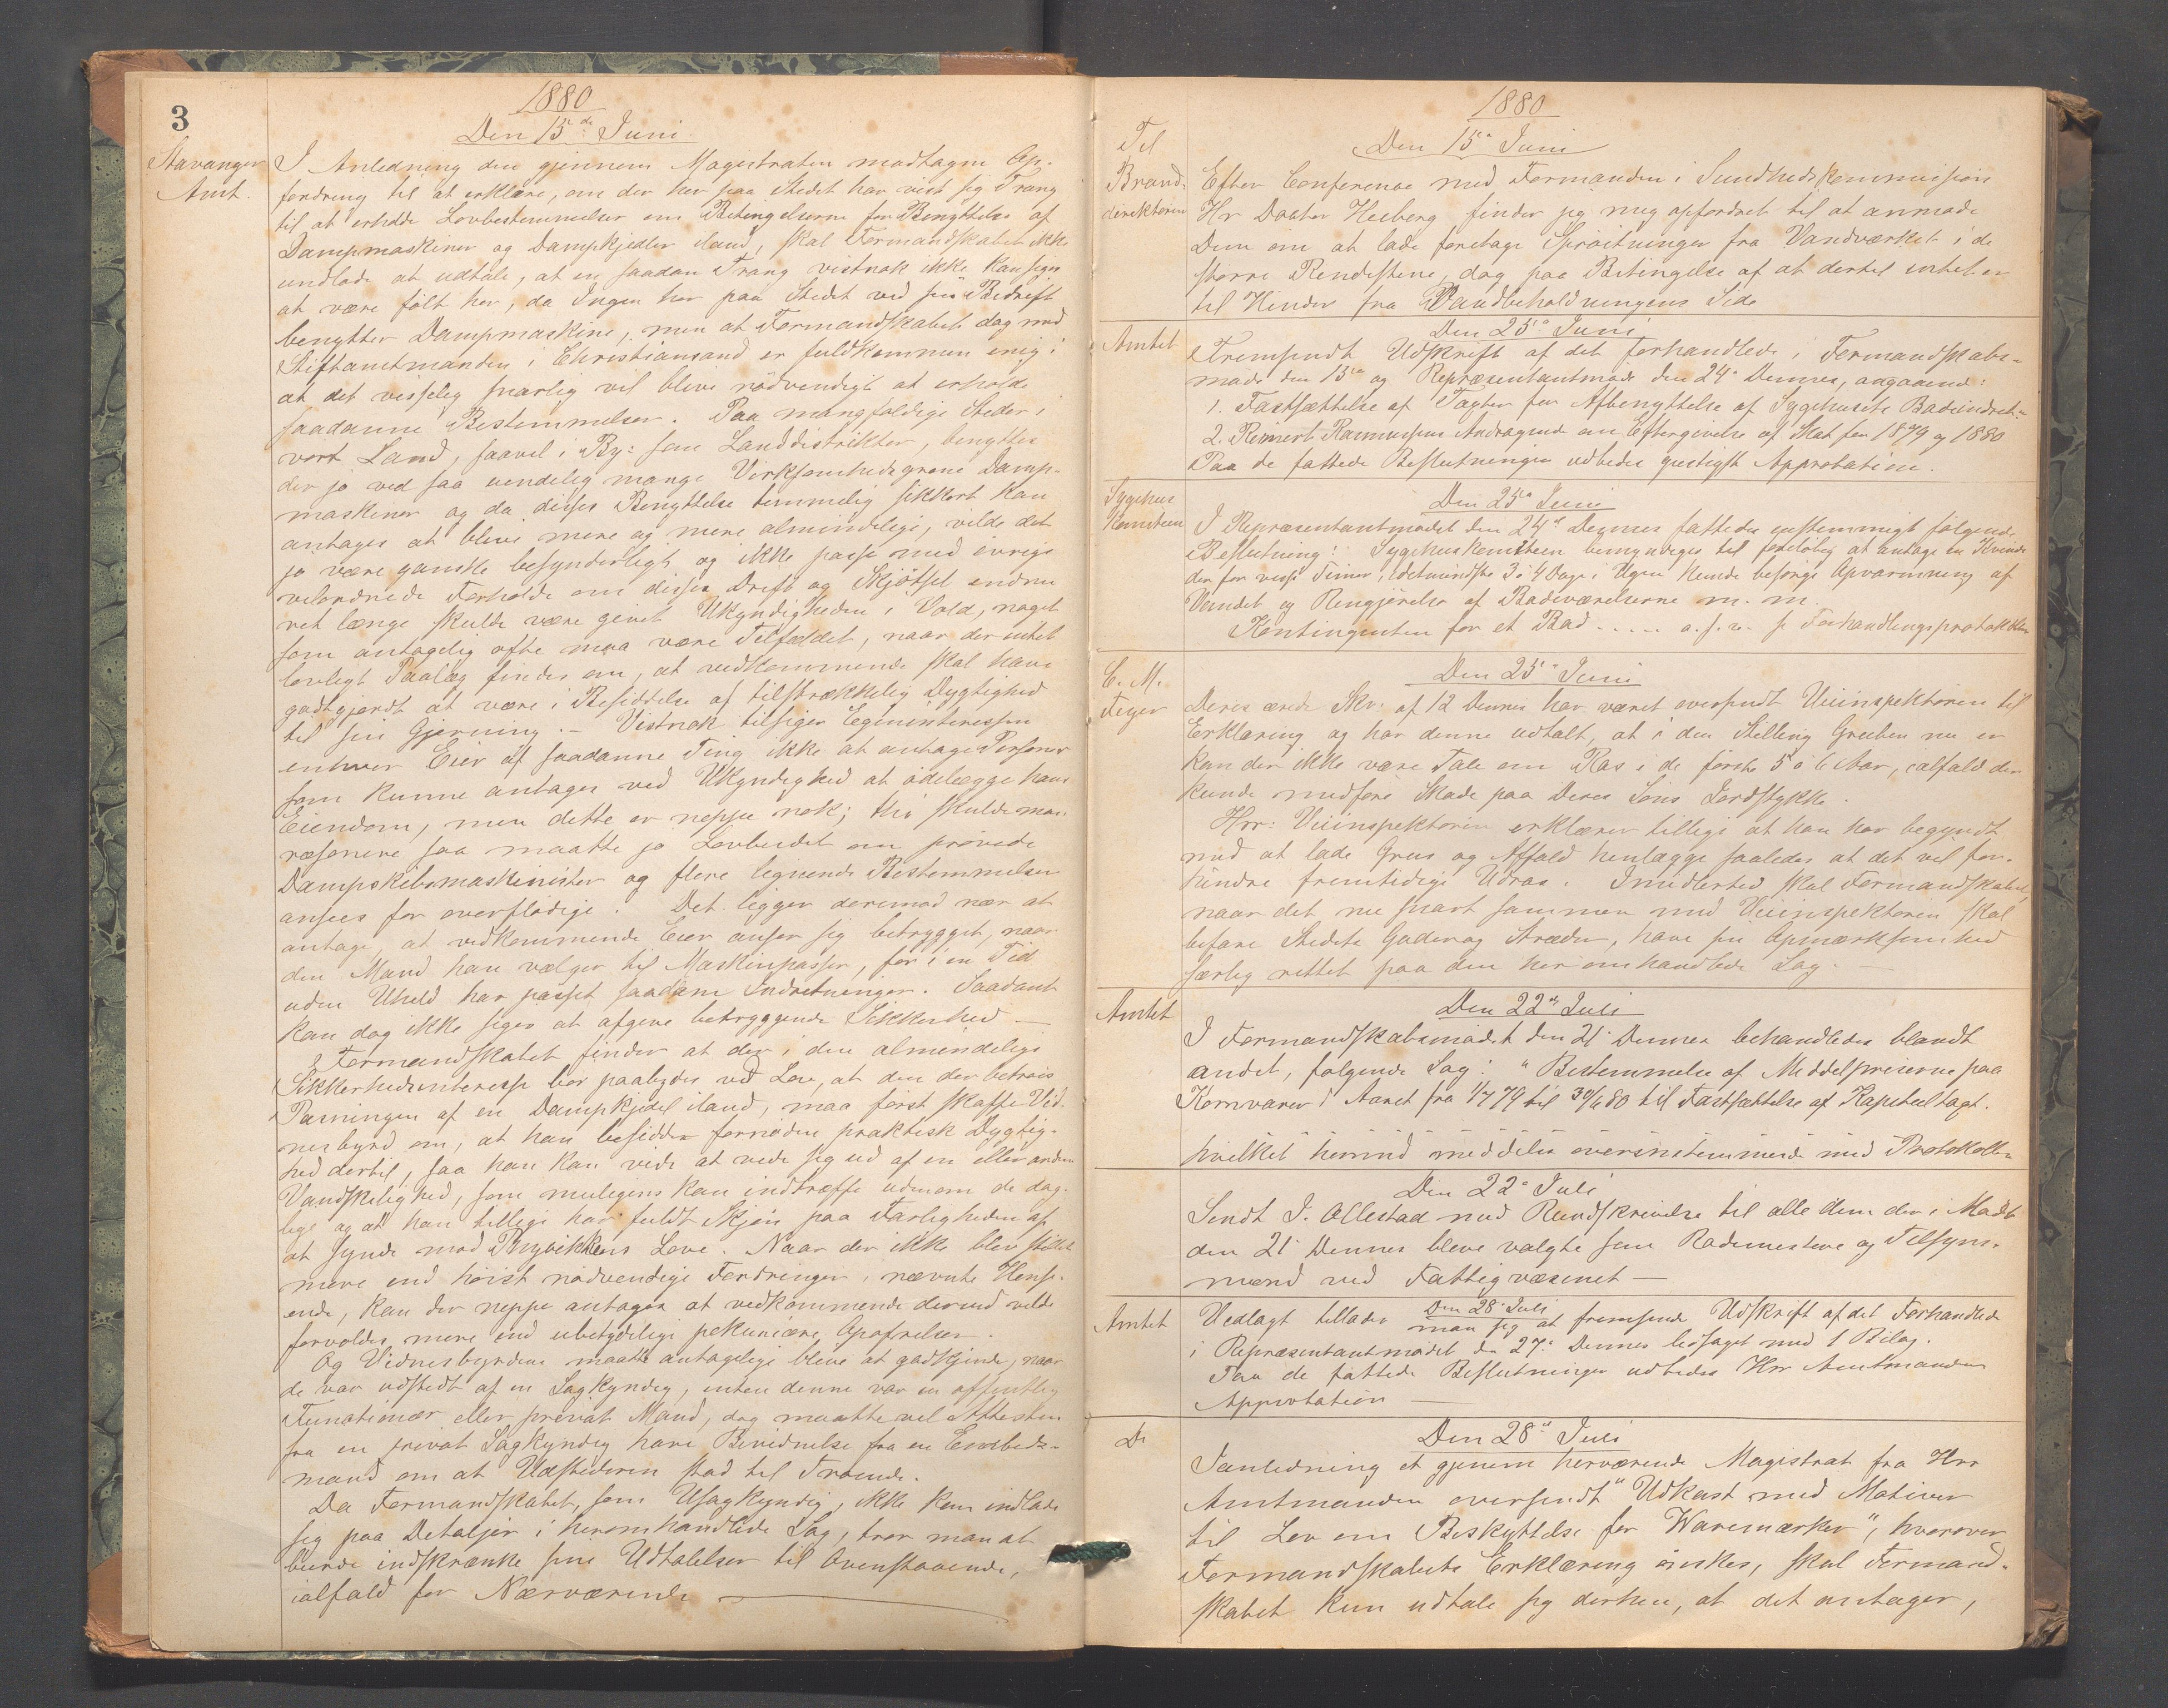 3
1880
Den 15de Juni
Stavanger
Amt.
I Anledning den gjennem Magistraten modtagne Op-
fordring til at erklære, om der her paa Stedet har vist sig Trang
til at erholde Lovbestemmelser om Betingelserne for Benyttelse af
Dampmaskiner og Dampkjedler iland, skal Formandskabet ikke
undlade at udtale, at en saadan Trang vistnok ikke kan siges
at være følt her, da Ingen her paa Stedet ved sin Bedrift
benytter Dampmaskine, men at Formandskabet dog med
Stiftamtmanden i Christiansand er fuldkommen enig i
at det visselig snarlig vil blive nödvendigt at erholde
saadanne Bestemmelser. Paa mangfoldige Steder i
vort Land, saavel i By: som Landdistrikter, benyttes
der jo ved saa uendelig mange Virksomhedsgrene Damp-
maskiner og da disses Benyttelse temmelig sikkert kan
antages at blive mere og mere almindelige, vilde det
jo være ganske besynderligt og ikke passe med övrige
velordnede Forholde om disses Drift og Skjötsel endnu
ret længe skulde være givet Ukyndigheden i Vold, noget
som antagelig ofte maa være Tilfældet, naar der intet
lovligt Paalæg findes om, at vedkommende skal have
godtgjordt at være i Besiddelse af tilstrækkelig Dygtighed
til sin Gjerning. – Vistnok tilsiger Egeninteressen
enhver Eier af saadanne Ting ikke at antage Personer
som kunne antages ved Ukyndighed at ödelægge hans
Eiendom, men dette er neppe nok; thi skulde man
ræsonere saa maatte jo Lovbudet om prövede
Dampskibsmaskinister og flere lignende Bestemmelser
ansees for overflödige. Det ligger derimod nær at
antage, at vedkommende Eier anser sig betrygget, naar
den Mand han vælger til Maskinpasser, för i en Tid
uden Uheld har passet saadane Indretninger. Saadant
kan dog ikke siges at afgive betryggende Sikkerhed –
Formandskabet finder at der i den almindelige
Sikkerhedsinteresse bör paabydes ved Lov, at den der betroes
Pasningen af en Dampkjedel iland, maa först skaffe Vid-
nesbyrd om, at han besidder fornöden praktisk Dygtig-
hed dertil, saa han kan vide at rede sig ud af en eller anden
Vanskelighed, som muligens kan indtræffe udenom de dag-
lige og at han tillige har fuldt Skjön paa Farligheden af
at synde mod Physikkens Love. Naar der ikke blev stillet
mere end höist nödvendige Fordringer i nævnte Hense-
ende, kan der neppe antages at vedkommende derved vilde
forvoldes mere end ubetydelige pekuniære Opofrelser.
Og Vidnesbyrdene maatte antagelige blive at godkjende, naar
de var udstedt af en Sagkyndig, enten denne var en offentlig
Funktionær eller privat Mand, dog maatte vel Attesten
fra en privat Sagkyndig have Bevidnelse fra en Embeds-
mand om at Udstederen stod til Troende.
Da Formandskabet, som Usagkyndig, ikke kan indlade
sig paa Detaljer i heromhandlede Sag, tror man at
burde indskrænke sine Udtalelser til Ovenstaaende,
ialfald for Nærværende
1880
Den 15de Juni
Til
Brand-
direktören
Efter Conference med Formanden i Sundhedskommission
Hr Doctor Heiberg finder jeg mig opfordret til at anmode
Dem om at lade foretage Spröitninger fra Vandværket i de
större Rendestene, dog paa Betingelse af at dertil intet er
til Hinder fra Vandbeholdningens Side
Den 25de Juni
Amtet
Fremsendt Udskrift af det forhandlede i Formandskabs-
möde den 15de og Repræsentantmöde den 24de Dennes, angaaende:
1. Fastsættelse af Taxter for Afbenyttelse af Sygehusets Badeindret-
2. Reinert Rasmussens Andragende om Eftergivelse af Skat for 1879 og 1880
Paa de fattede Beslutninger udbedes gunstigst Approbation.
Den 25de Juni
Sygehus
Komiteen
I Repræsentantmödet den 24de Dennes fattedes enstemmigt fölgende
Beslutning: Sygehuskomiteen bemyndiges til foreløbig at antage en Kvinde
der for visse Timer, idetmindste 3 à 4 Dage i Ugen kunde besörge Opvarmning af
Vandet og Rengjörelse af Badeværelserne m. m.
Kontingenten for et Bad ..... o. s. v. se Forhandlingsprotokollen
Den 25de Juni
C. M.
Feyer
Deres ærede Skr. af 12 Dennes har været oversendt Veiinspektören til
Erklæring og har denne udtalt, at i den Stilling Gruben nu er
kan der ikke være Tale om Ras i de förste 5 à 6 Aar, ialfald der
kunde medföre Skade paa Deres Söns Jordstykke.
Hrr: Veiinspektören erklærer tillige at han har begyndt
med at lade Grus og Affald henlægge saaledes at det vil for-
hindre fremtidige Udras. Imidlertid skal Formandskabet,
naar det nu snart sammen med Veiinspektören skal
befare Stedets Gader og Stræder, have sin Opmærksomhed
særlig rettet paa den her omhandlede Sag. –
Den 22de Juli
Amtet
I Formandskabsmödet den 21 Dennes behandledes blandt
andet, fölgende Sag: "Bestemmelse af Middelpriserne paa
Kornvarer i Aaret fra 1/7 79 til 30/6 80 til Fastsættelse af Kapiteltaxt.
hvilket herved meddeles overensstemmende med Protokollen
Den 22de Juli
Sendt J. Ollestad med Rundskrivelse til alle dem der i Mödet
den 21 Dennes bleve valgte som Rodemestere og Tilsyns-
mænd ved Fattigvæsenet –
Den 28de Juli
Amtet
Vedlagt tillader man sig at fremsende Udskrift af det Forhandlede
i Repræsentantmödet den 27de Dennes ledsaget med 1 Bilag.
Paa de fattede Beslutninger udbedes Hrr Amtmandens
Approbation –
Den 28de Juli
Do
Ianledning et gjenem herværende Magistrat fra Hrr
Amtmanden oversendt "Udkast med Motiver
til Lov om Beskyttelse for Waremærker", hvorover
Formandskabets Erklæring önskes, skal Formand-
skabet kun udtale sig derhen, at det antager,